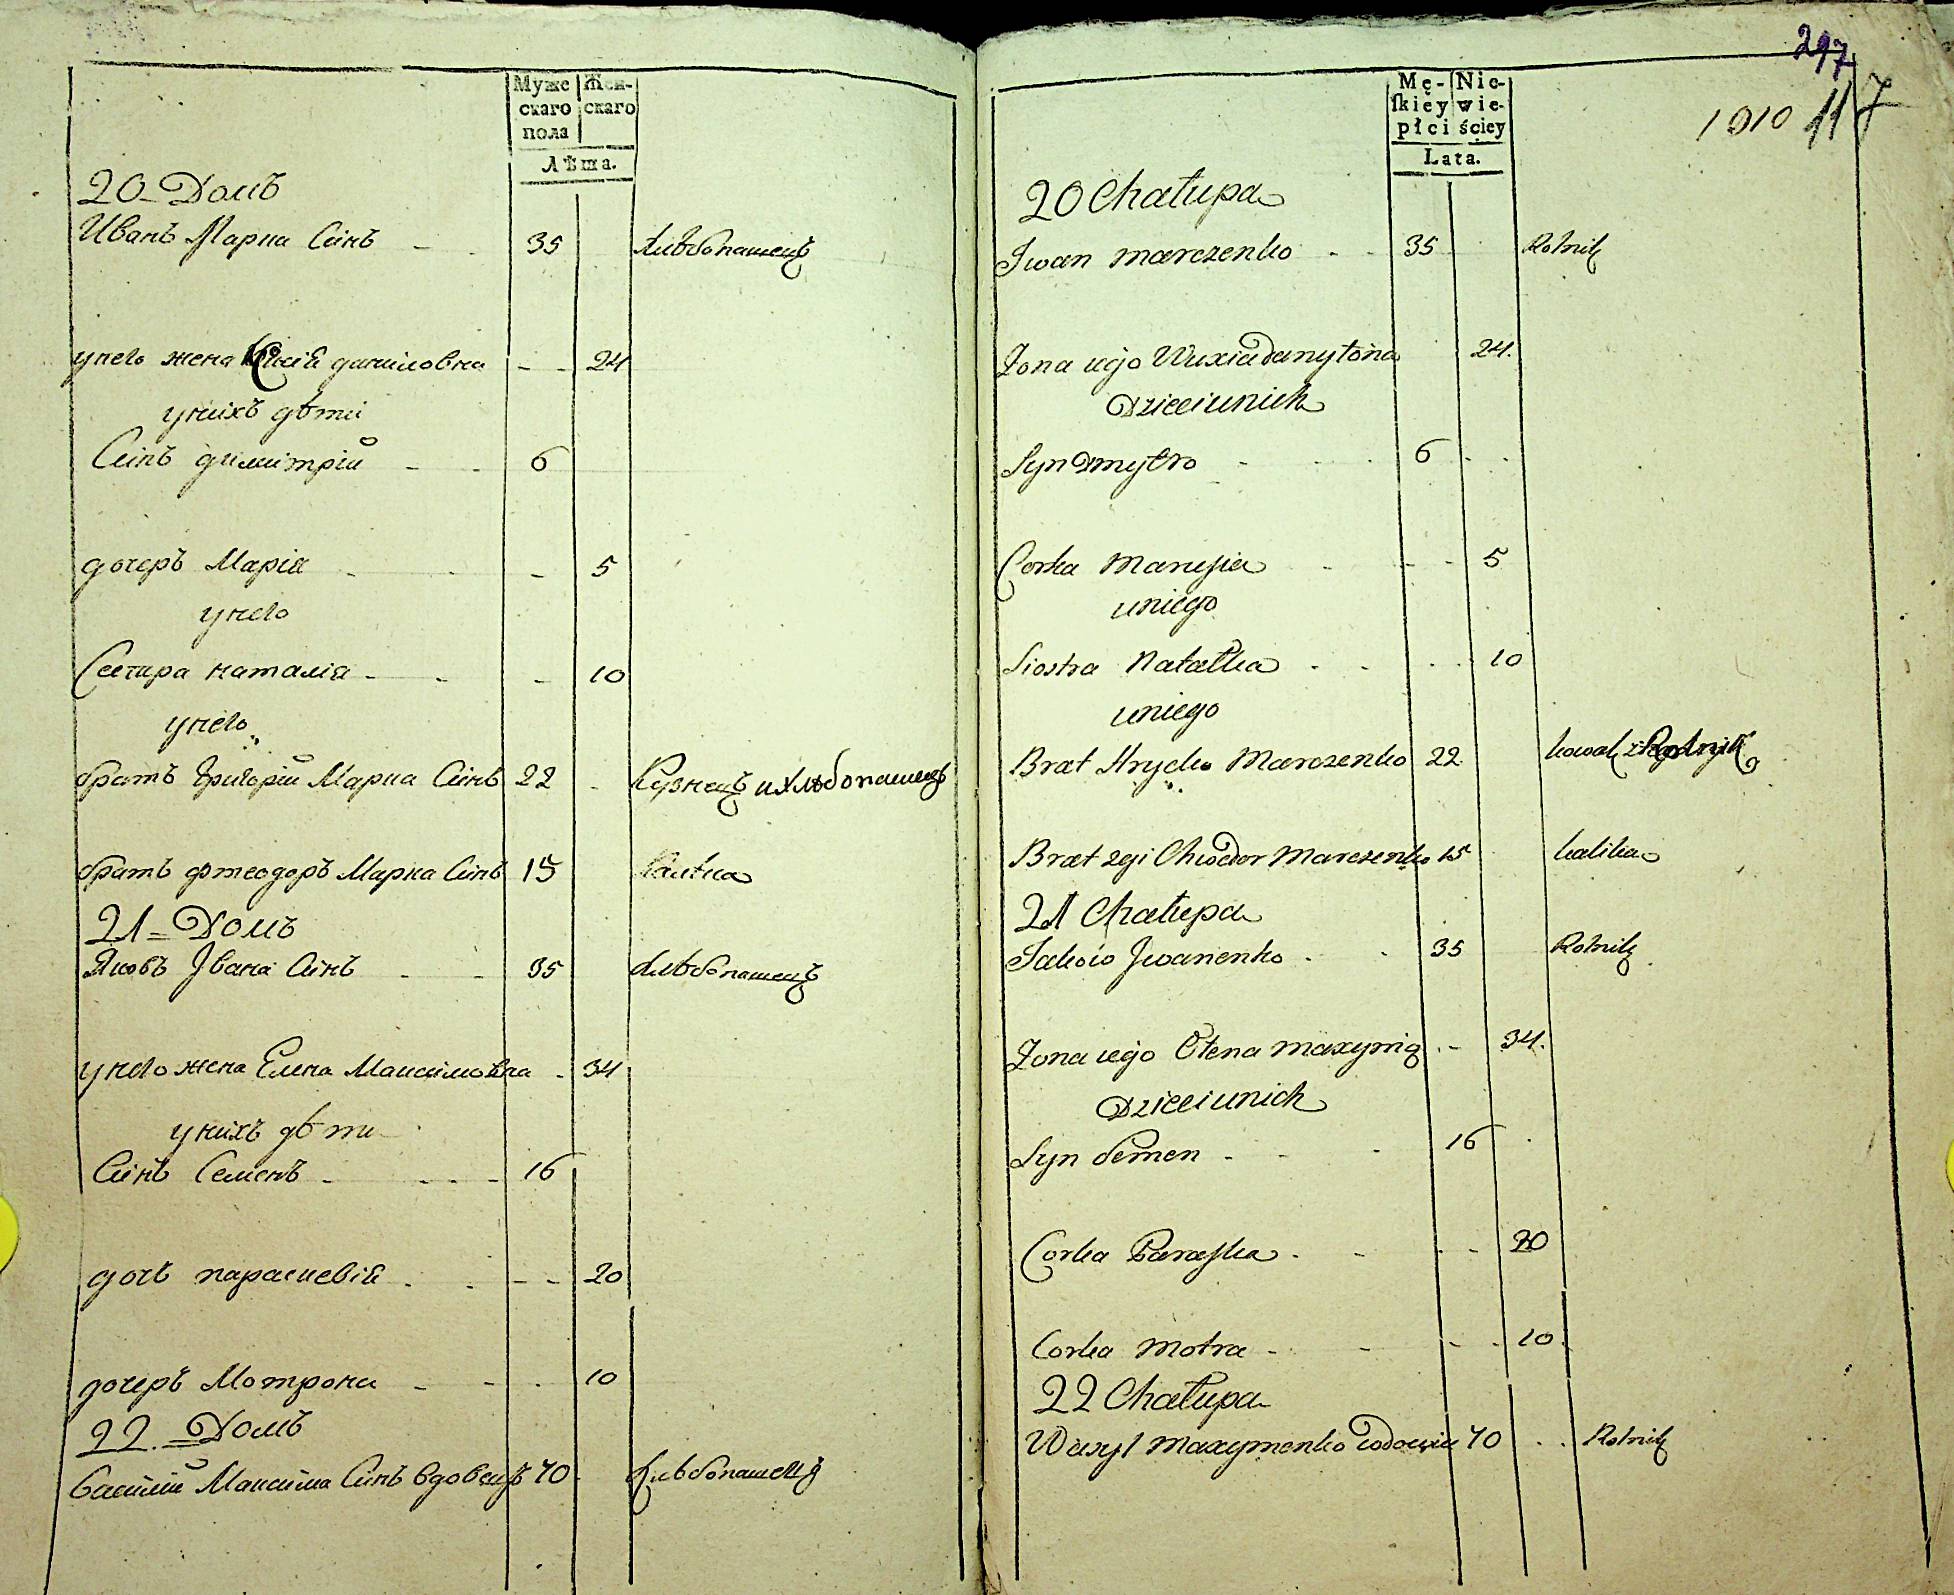 Муже Жен-
скаго скаго
пола
Лѣта.
20 Домъ
Иванъ Марка Синъ 35 Хлѣбопашецъ
унего жена даниловна 24
унихъ дѣти
Синъ димитрій 6
дочеръ Марія 5
унего
Сестра наталія 10
унего
братъ Григорій Марка Синъ 22 Кузнецъ и хлѣбопашецъ
братъ фтеодоръ Марка Синъ 15 Калѣка
21 Домъ
Яковъ Івана Синъ 35 хлѣбопашецъ
унего жена Елена Максимовна 34
унихъ дѣти
Синъ Семенъ 16
дочь параскевія 20
дочеръ Мотрона 10
22. Домъ
Василій Максима Синъ вдовецъ 70 хлѣбопашецъ
297
1010 117
Mę- Nie-
ſkiey wie-
płci ściey
Lata.
20 Chałupa
Jwan Marczenko 35 Rolnik
Żona iego Danyłowna 24.
Dzieci unich
Syn Dmytro 6
Corka Marusia 5
uniego
Siostra Natałka 10
uniego
Brat Hryćko Marczenko 22 kowal i Rolnik
Brat Chwedor Marczenko 15 kalika
21 Chałupa
Jakow Jwanenko 35 Rolnik
Żona iego Ołena 34.
Dzieci unich
Syn Semen 16
Corka Paraska 20
Corka Motra 10
22 Chałupa
Wasyl Maxymenko wdowiec 70 Rolnik